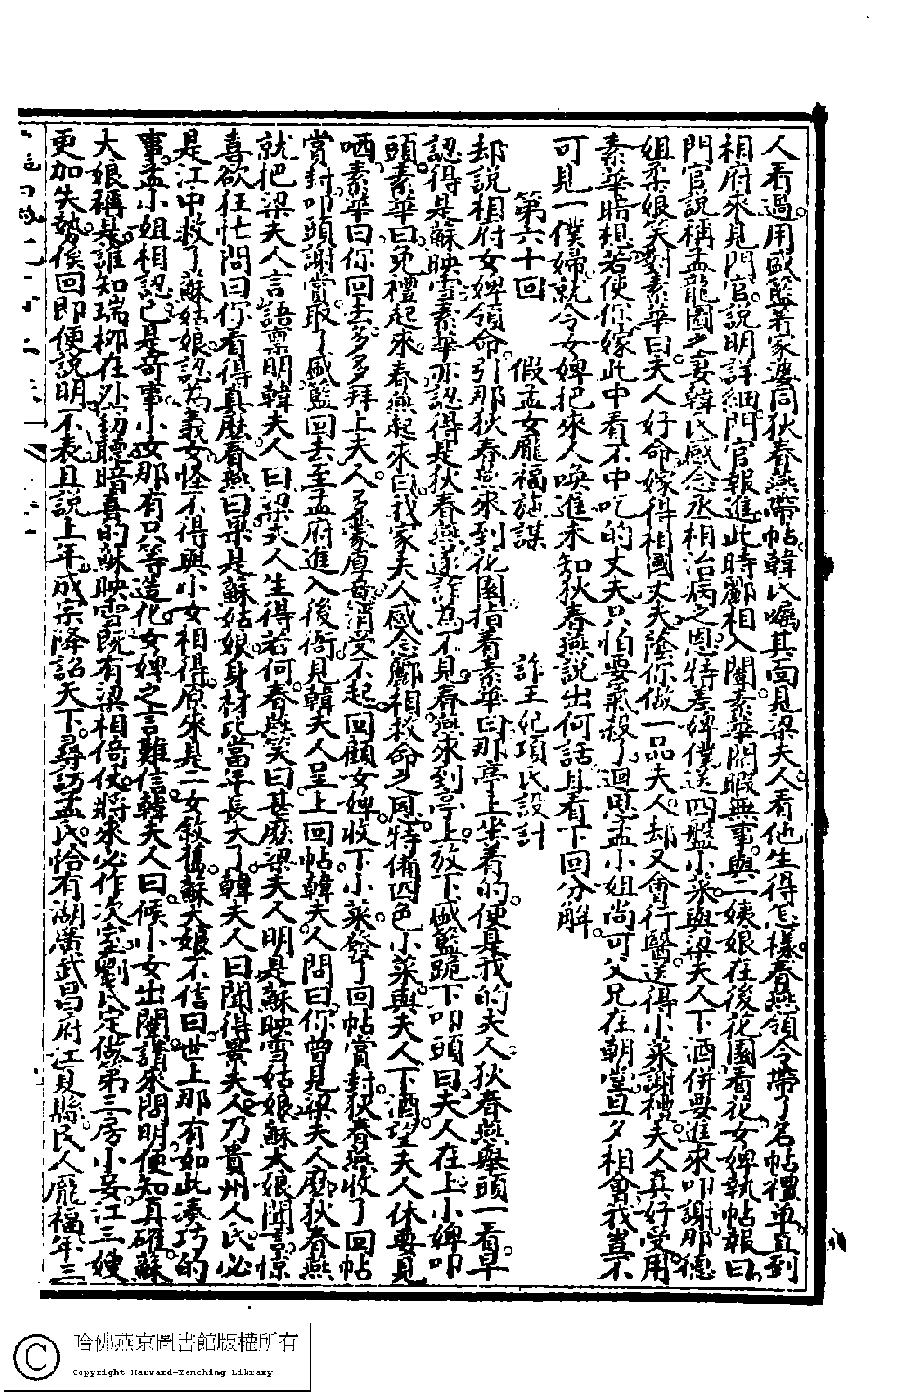 人看過。用盛籃着家婆同狄春燕帶帖。韓氏囑其面見梁夫人。看他生得怎樣。春燕領令帶了名帖禮單。直到
相府來見門官。說明詳細。門官報進。此時酈相入闈。素華閒暇無事。與二姨娘在後花園看花。女婢執帖報曰
門官說稱孟龍圖之妻韓氏。感念丞相治病之恩。特差婢僕送四盤小菜與梁夫人下酒。併要進來叩謝。那德
姐柔娘笑對素華曰。夫人好命。嫁得相國丈夫。蔭你做一品夫人。却又會行醫。送得小菜謝禮。夫人真好受用
素華暗想。若使你嫁此中看不中吃的丈夫。只怕要氣殺了。迴思孟小姐尚可父兄在朝。當旦夕相會。我豈不
可見一僕婦。就令女婢把來人喚進。未知狄春燕說出何話。且看下回分解
第六十回 假孟女龐福施謀 詐王妃項氏設計
却說相府女婢領命。引那狄春燕來到花園。指着素華曰。那亭上坐着的。便是我的夫人。狄春燕舉頭一看。早
認得是蘇映雪。素華亦認得是狄春燕。遂詐為不見。春燕來到亭上。放下盛籃。跪下叩頭曰。夫人在上。小婢叩
頭。素華曰。免禮起來。春燕起來曰。我家夫人感念酈相救命之恩。特備四色小菜與夫人下酒。望夫人休要見
哂。素華曰。你回去多多拜上夫人。多蒙厚待。消受不起。回顧女婢收下小菜。發了回帖賞封。狄春燕收了回帖
賞封。叩頭謝賞。取了盛籃回去。至孟府進入後衙。見韓夫人呈上回帖。韓夫人問曰。你曾見梁夫人麼。狄春燕
就把梁夫人言語稟明。韓夫人曰。梁夫人生得若何。春燕笑曰。甚麼梁夫人。明是蘇映雪姑娘。蘇大娘聞言。驚
喜欲狂。忙問曰。你看得真麼。春燕曰。果是蘇姑娘。身材比當年長大了。韓夫人曰。聞得景夫人乃貴州人氏。必
是江中救了蘇姑娘。認為義女。怪不得與小女相得。原來是二女敘舊。蘇大娘不信曰。世上那有如此湊巧的
事。孟小姐相認。已是奇事。小女那有只等造化。女婢之言難信。韓夫人曰。候小女出闈。請來問明。便知真確。蘇
大娘稱是。誰知瑞柳在外竊聽。暗喜的蘇映雪既有梁相倚仗。將來必作次室。劉氏定做第三房小妾。江三嫂
更加失勢。俟回即便說明不表。且說上年成宗降詔天下。尋訪孟氏。恰有湖廣武昌府江夏縣民人龐福。年三
哈佛燕京圖書館版權所有
Copyright Harvard-Yenching Library